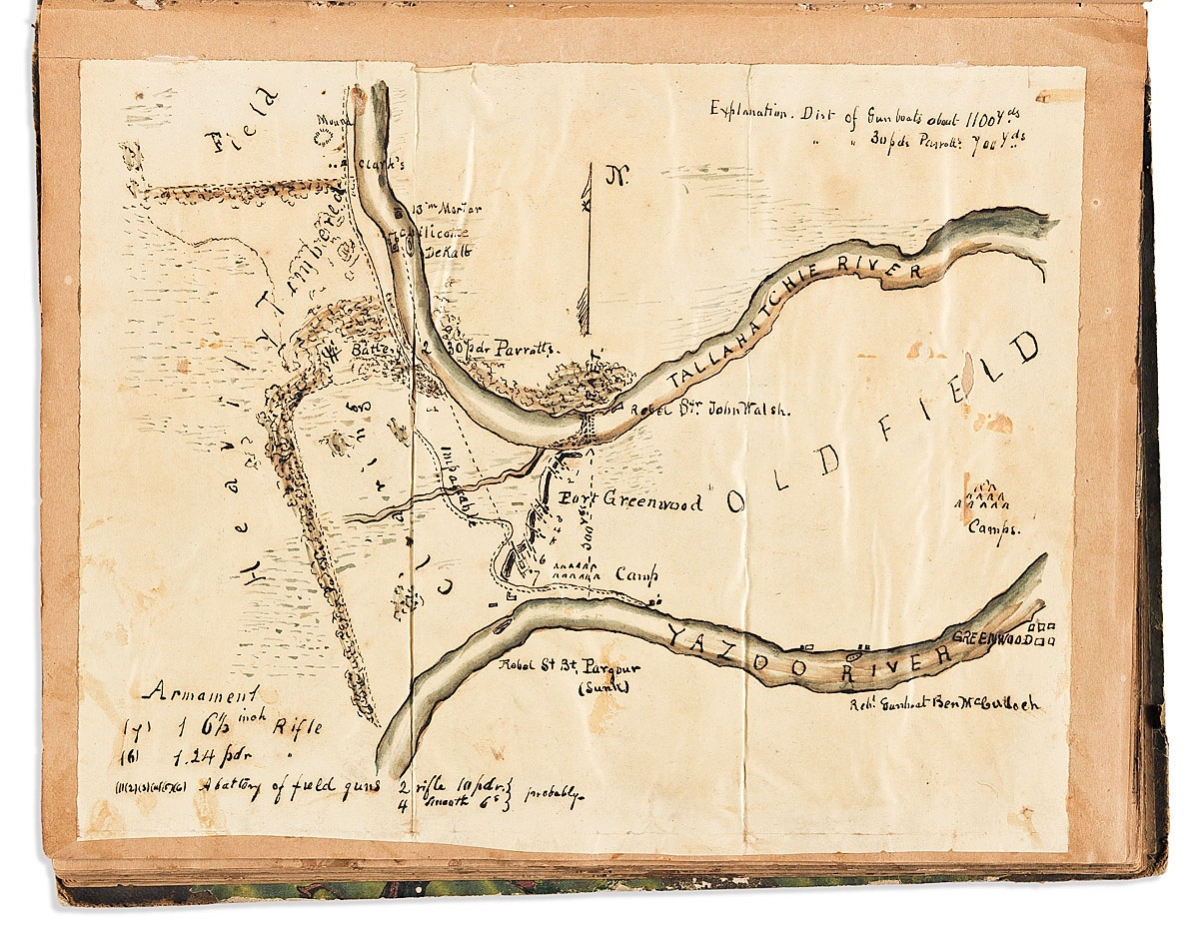 Field
Mound
Clark's
Explanation. Dist of Gunboats about 1100 Yds
" " 30 pdr Parrotts 700 Yds
N.
13 in Mortar
Chilicothe
DeKalb
Heavily Timbered
TALLAHATCHIE RIVER
Batte
2 30 pdr Parrotts.
Rebel Str. John Walsh.
OLD FIELD
Clearing
Impassable
Fort Greenwood
Camps.
6
7
Camp
YAZOO RIVER
GREENWOOD
Rebel St Bt. Pargour
(Sunk)
Reb. Gunboat Ben McCulloch
Armament
(7) 1 6 1/2 inch Rifle
(6) 1.24 pdr "
(1)(2)(3)(4)(5)(6) A battery of field guns 2 rifle 10 pdr. } probably
4 smooth 6s }